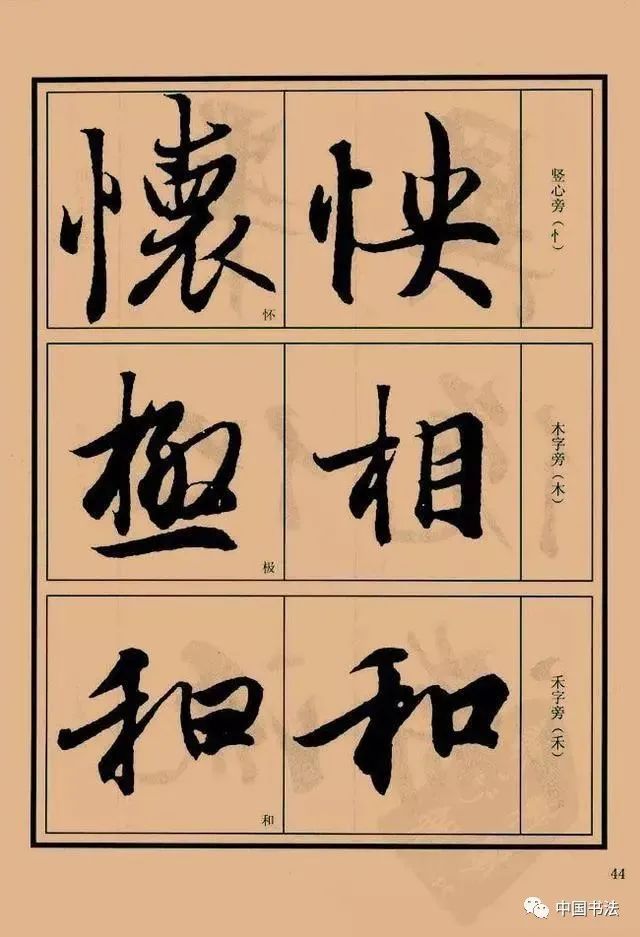 竖心旁（忄）
怏
懷
怀
木字旁（木）
相
極
极
禾字旁（禾）
和
和
和
44
中国书法